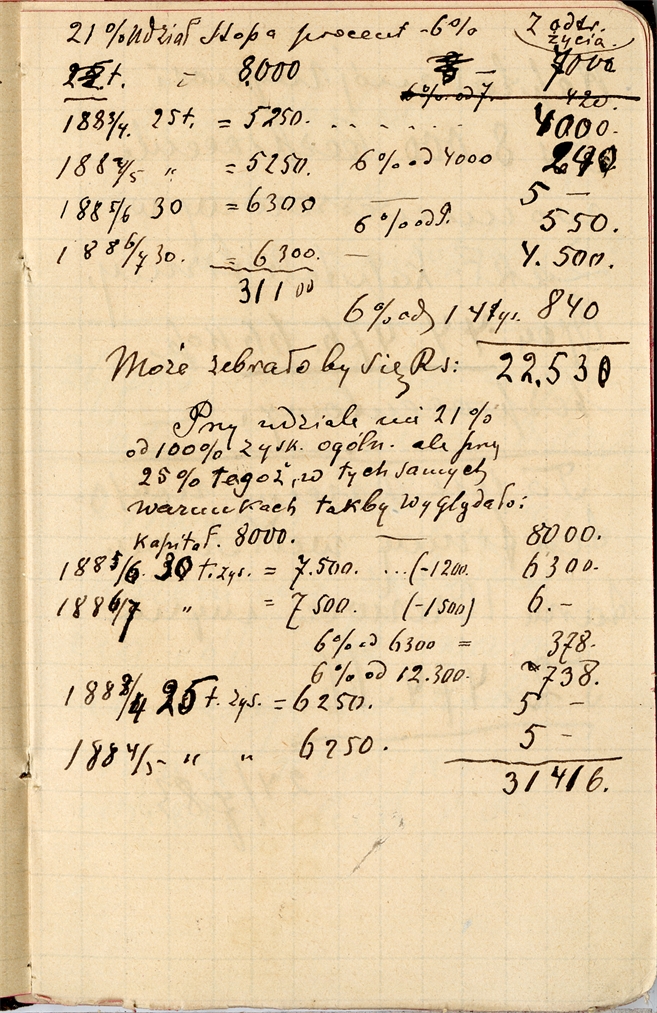 21% Udział Stopa procent - 6% Z odtr. życia.
t. - 8000 7000
6% od 7. 420.
1883/4. 25 t. = 5250. . . . . . . 4000.
1884/5 " = 5250. 6% od 4000 240
1885/6 30 = 6300 — 5 —
6% od 9. 550.
1886/7 30. = 6300. — 4.500.
31100
6% od 14 tys. 840
Może zebrało by się Rs: 22.530
Przy udziale mi 21%
od 100% zysk. ogóln. ale przy
25% tegoż, w tych samych
warunkach takby wyglądało:
Kapitał. 8000. — 8000.
1885/6. 30 t. zys. = 7.500. ...(-1200. 6300.
1886/7 " = 7500. (-1500) 6. -
6% od 6300 = 378.
6% od 12.300. " 738.
1883/4 25 t. zys. = 6250. 5 -
1884/5 - " " 6250. 5 -
31416.